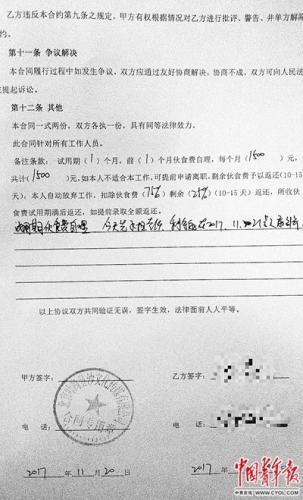 乙方违反本合约第九条之规定，甲方有权根据情况对乙方进行批评、警告、并单方解除
约。
第十一条 争议解决
本合同履行过程中如发生争议，双方应通过友好协商解决，协商不成，双方可向人民法
起诉讼。
第十二条 其他
本合同一式两份，双方各执一份，具有同等法律效力。
此合同针对所有工作人员。
备注条款：试用期（1）个月，前（1）个月伙食费自理，每个月（1500）元，
共计（1500）元，如本人不适合本工作，可提前申请离职，剩余伙食费予以返还(10-15
天)。本人自动放弃工作，扣除伙食费（75%）剩余（25%）(10-15 天) 返还，所收伙
食费试用期满后返还，如提前录取全额返还。
试用期伙食费自理 今天 2017.11.
以上协议双方共同验证无误，签字生效，法律面前人人平等。
甲方签字： 乙方签字：
文化传播有限公司
合同专用章
电 话： 电 话：
2017 年 11 月 20 日 2017 年
中国青年报
中青在线 WWW.CYOL.COM